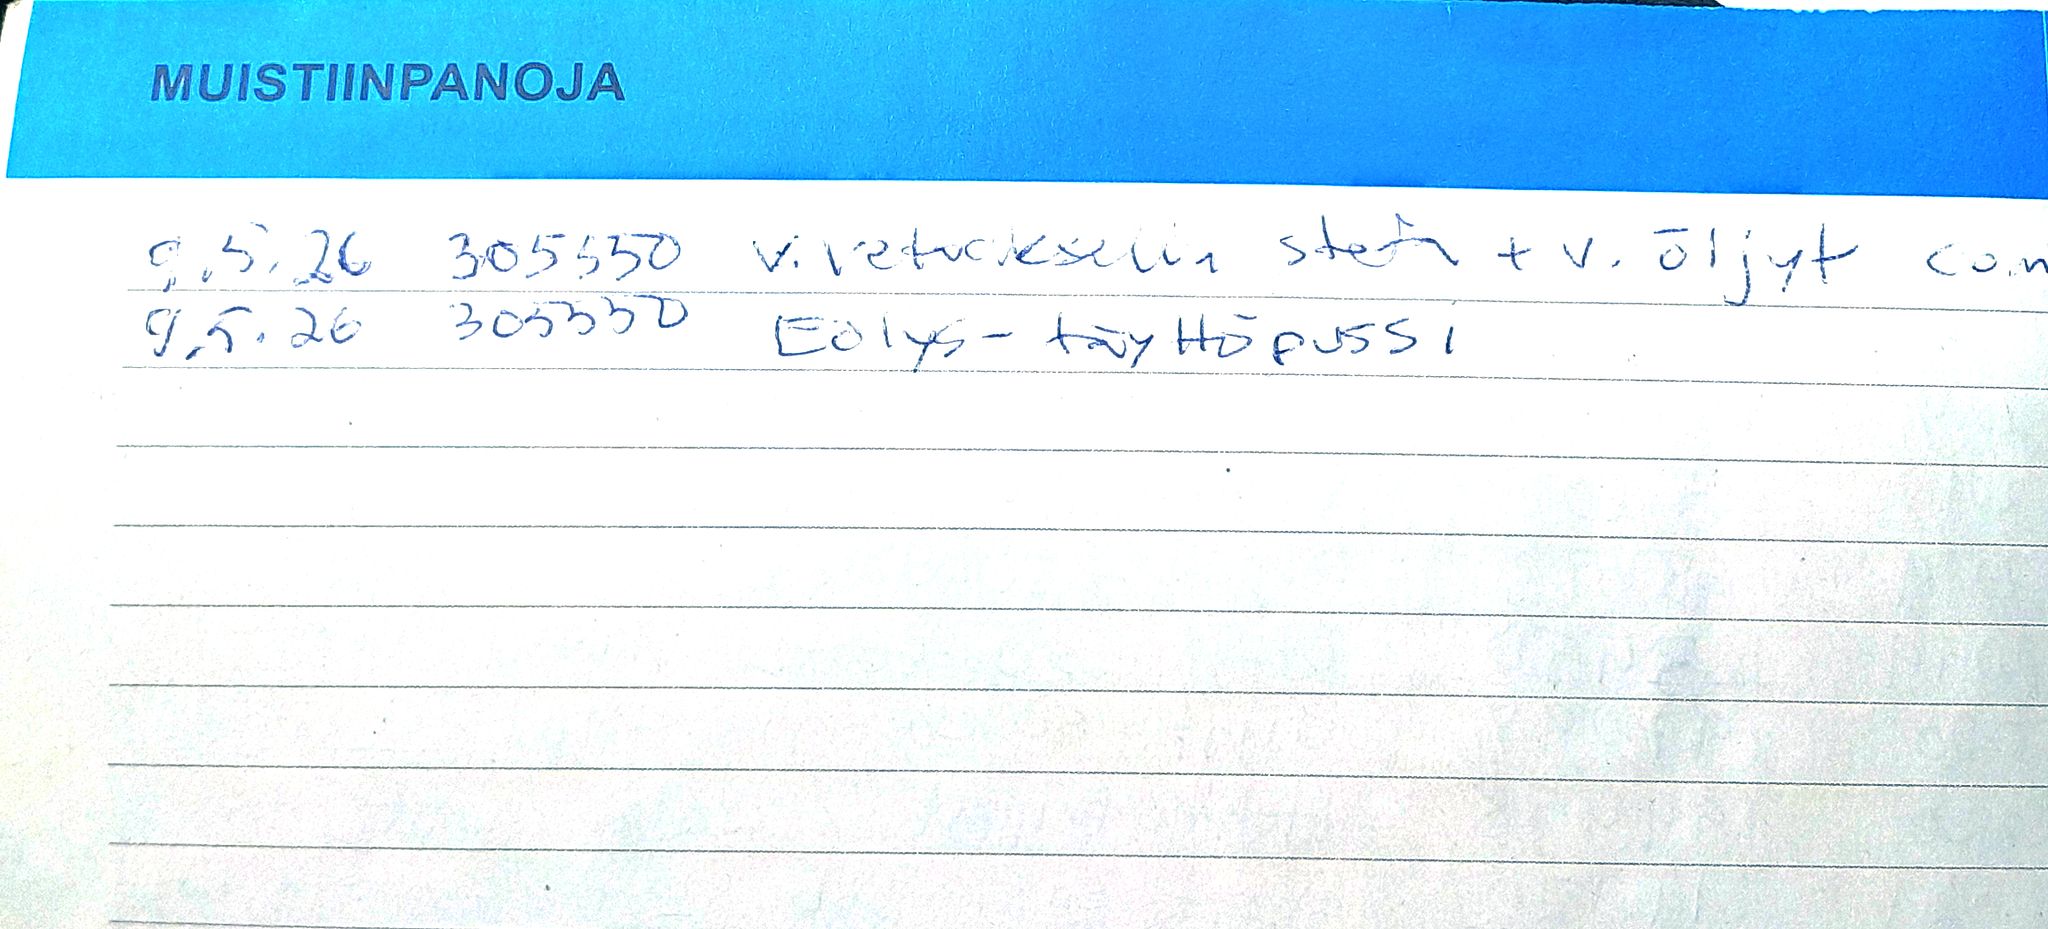 MUISTIINPANOJA
9.5.26 305550 v. vetoakselin stefa + v. öljyt
9.5.26 305550 Eolys-täyttöpussi